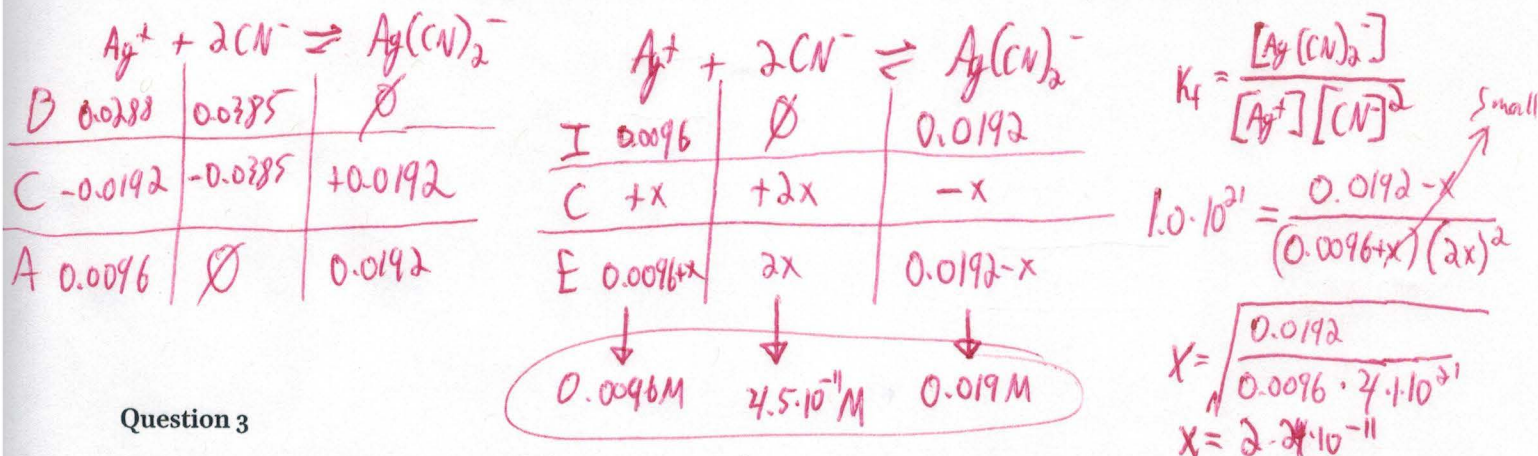 Ag⁺ + 2CN⁻ ⇌ Ag(CN)₂⁻
B 0.0288 | 0.0385 | Ø
C -0.0192 | -0.0385 | +0.0192
A 0.0096 | Ø | 0.0192
Ag⁺ + 2CN⁻ ⇌ Ag(CN)₂⁻
I 0.0096 | Ø | 0.0192
C +x | +2x | -x
E 0.0096+x | 2x | 0.0192-x
0.0096M 4.5·10⁻¹¹M 0.019M
Kf = [Ag(CN)₂⁻] / [Ag⁺][CN⁻]²
Small
1.0·10²¹ = 0.0192-x / (0.0096+x)(2x)²
x = √(0.0192 / 0.0096·4·1·10²¹)
x = 2.24·10⁻¹¹
Question 3